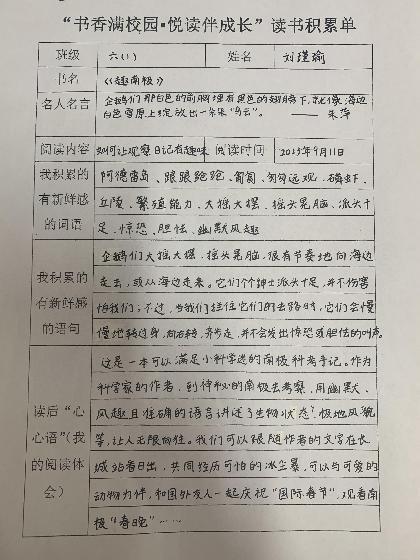 “书香满校园·悦读伴成长”读书积累单
班级 六(1) 姓名 刘瑾瑜
书名 《趣南极》
名人名言 企鹅们那白色的前胸埋有黑色的翅膀下,就像海边
白色雪原上绽放出一朵朵“乌云”。 ——朱萍
阅读内容 如何让观察日记有趣味 阅读时间 2025年9月11日
我积累的有新鲜感的词语
阿德雷岛、踉踉跄跄、匍匐、匆匆远观、磷虾、
丘陵、繁殖能力、大摇大摆、摇头晃脑、派头十
足、惊恐、胆怯、幽默风趣
我积累的有新鲜感的语句
企鹅们大摇大摆、摇头晃脑,很有节奏地向海边
走去,或从海边走来。它们个个绅士派头十足,并不伤害
怕我们;不过,当我们拦住它们的去路时,它们会慢
慢地转过身,向右转,齐步走,并不会发出惊恐或胆怯的叫声。
读后“心心语”(我的阅读体会)
这是一本可以满足小科学迷的南极科考手记。作为
科学家的作者,到神秘的南极去考察,用幽默、
风趣且准确的语言讲述了生物状态、极地风貌
等,让人无限向往。我们可以跟随作者的文字在长
城站看日出,共同经历可怕的冰尘暴,可以与可爱的
动物为伴,和国外友人一起庆祝“国际春节”,观看南
极“春晚”……